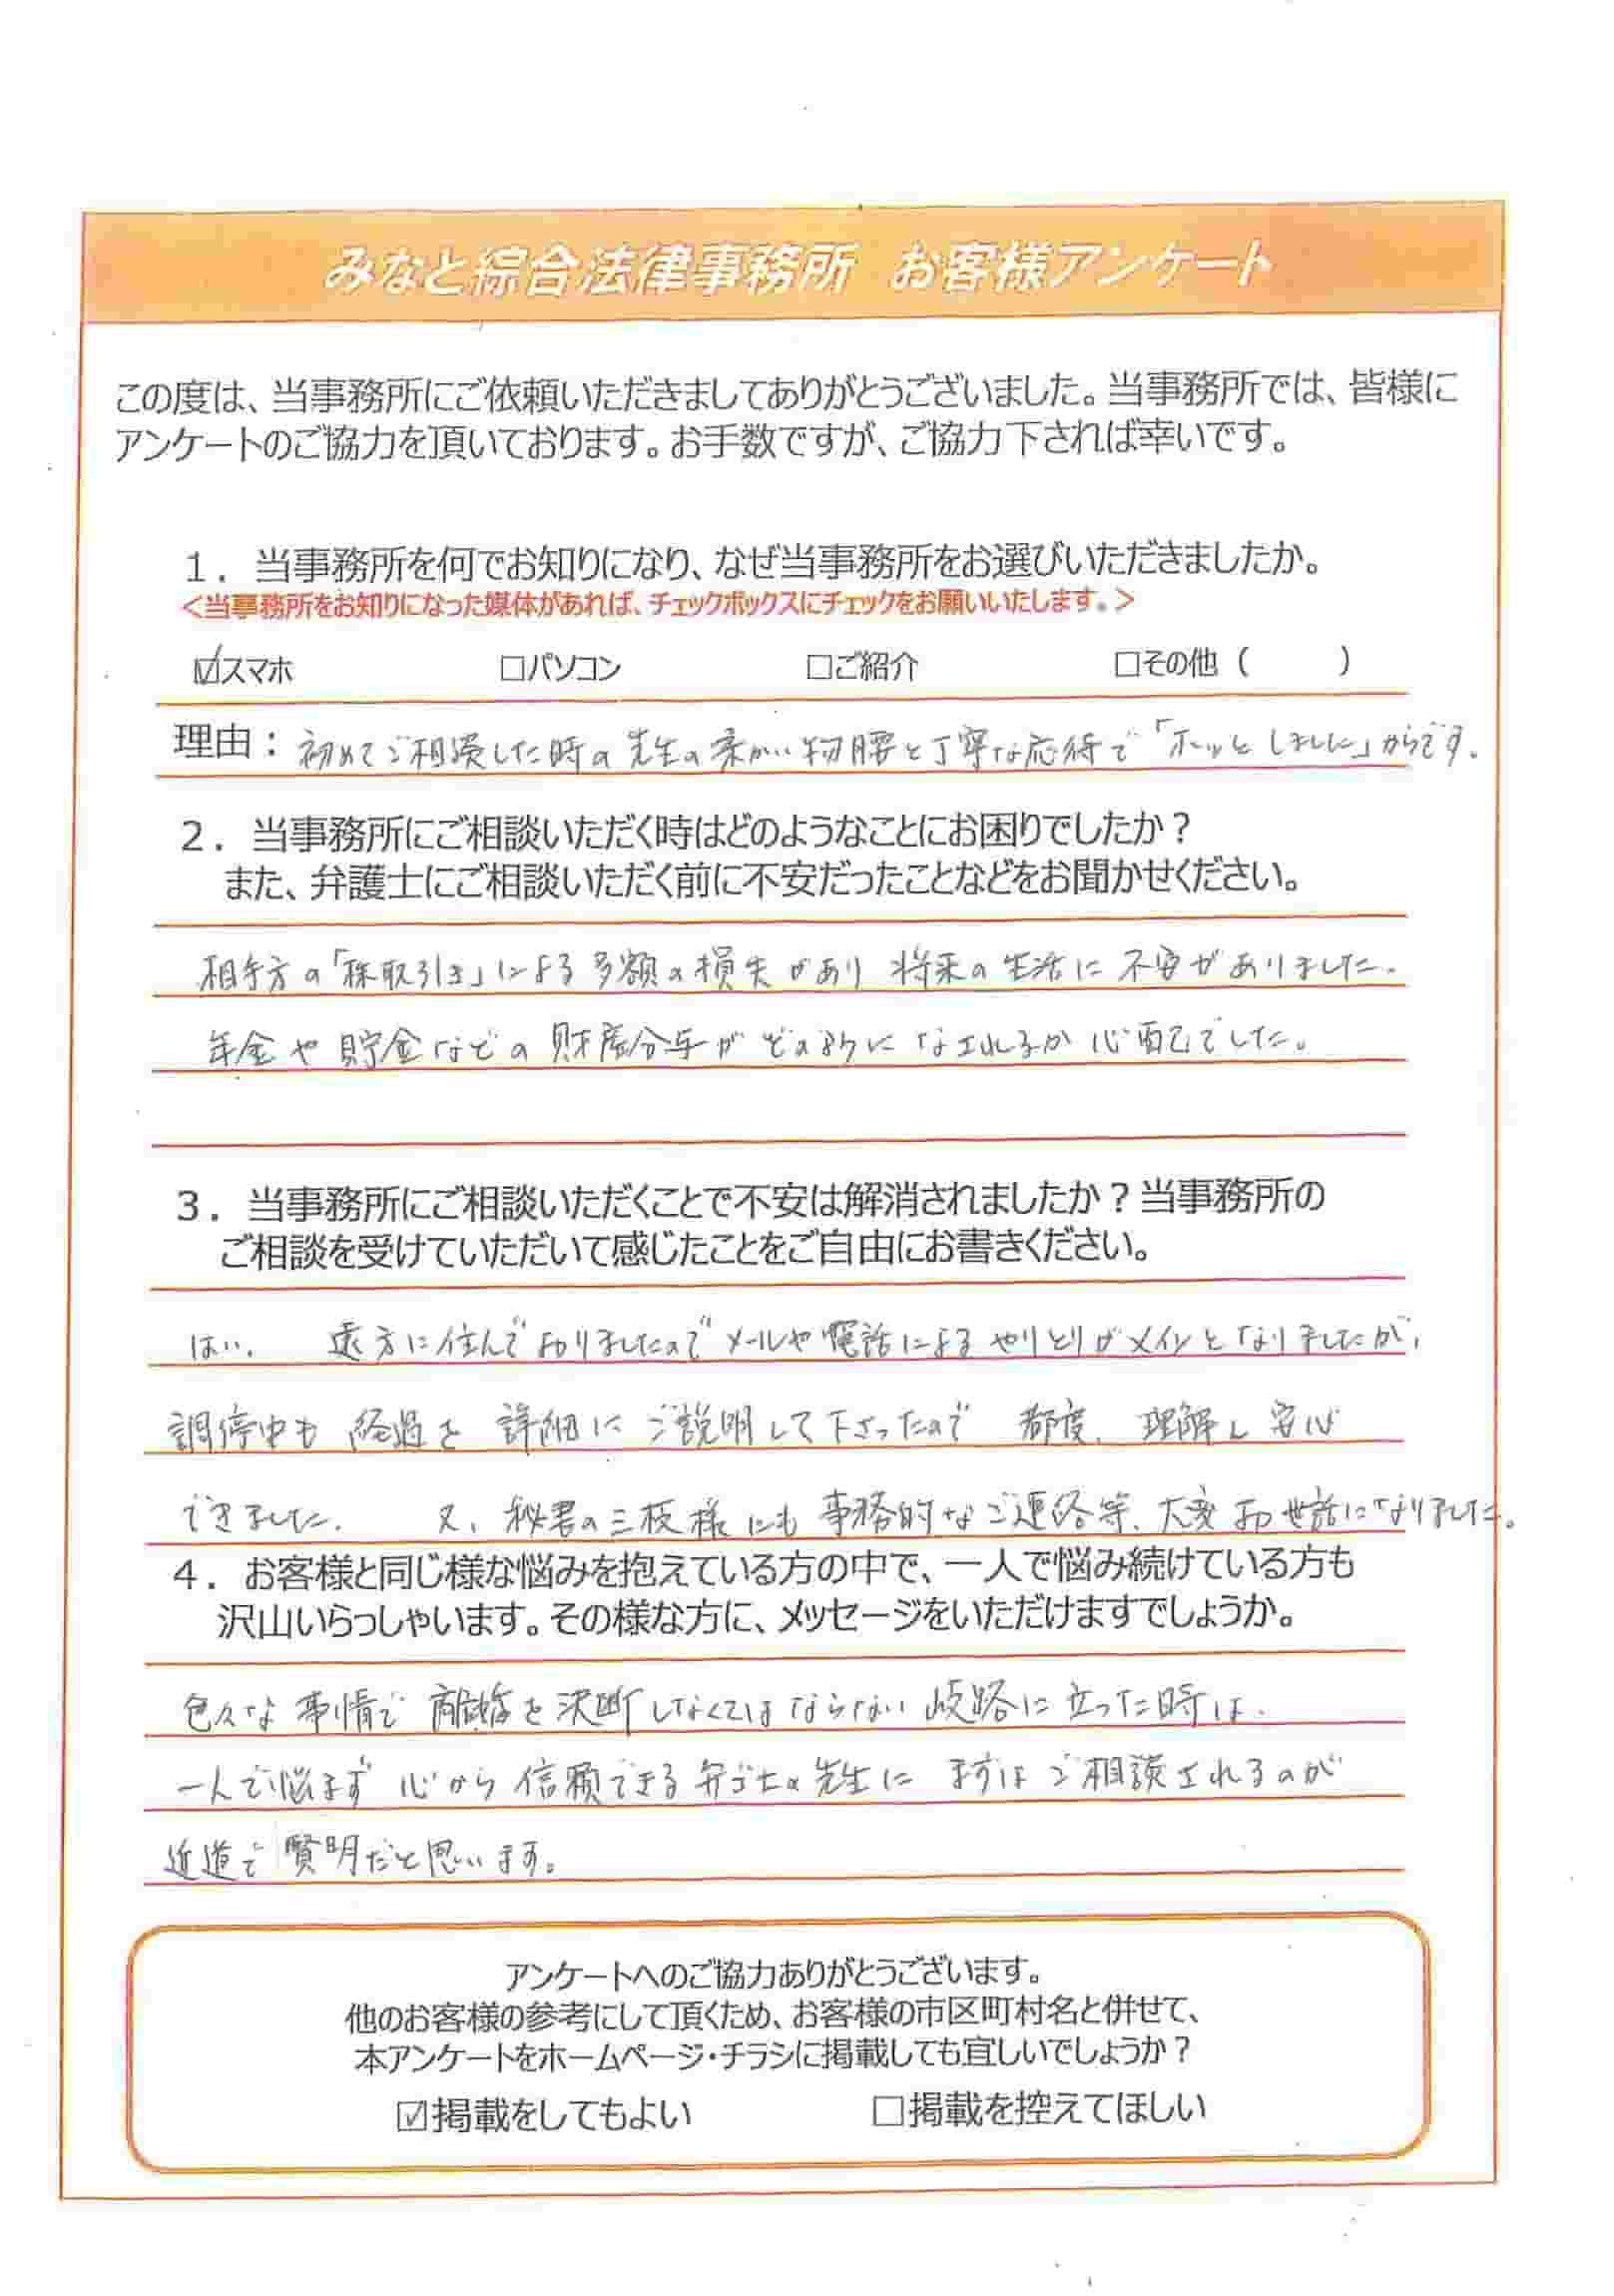 みなと綜合法律事務所 お客様アンケート
この度は、当事務所にご依頼いただきましてありがとうございました。当事務所では、皆様に
アンケートのご協力を頂いております。お手数ですが、ご協力下されば幸いです。
1．当事務所を何でお知りになり、なぜ当事務所をお選びいただきましたか。
＜当事務所をお知りになった媒体があれば、チェックボックスにチェックをお願いいたします。＞
☑スマホ □パソコン □ご紹介 □その他（　　　）
理由：初めてご相談した時の先生の柔かい物腰と丁寧な応待で「ホッとしました」からです.
2．当事務所にご相談いただく時はどのようなことにお困りでしたか？
また、弁護士にご相談いただく前に不安だったことなどをお聞かせください。
相手方の「株取引き」による多額の損失があり 将来の生活に不安がありました.
年金や貯金などの財産分与がどのようになされるか心配でした。
3．当事務所にご相談いただくことで不安は解消されましたか？当事務所の
ご相談を受けていただいて感じたことをご自由にお書きください。
はい. 遠方に住んでおりましたのでメールや電話によるやりとりがメインとなりましたが,
調停中も 経過を 詳細に ご説明して下さったので 都度、理解し安心
できました. 又、秘書の三枝様にも事務的なご連絡等、大変お世話になりました。
4．お客様と同じ様な悩みを抱えている方の中で、一人で悩み続けている方も
沢山いらっしゃいます。その様な方に、メッセージをいただけますでしょうか。
色々な事情で離婚を決断しなくてはならない岐路に立った時は.
一人で悩まず 心から信頼できる弁ゴ士の先生に まずはご相談されるのが
近道で賢明だと思います。
アンケートへのご協力ありがとうございます。
他のお客様の参考にして頂くため、お客様の市区町村名と併せて、
本アンケートをホームページ・チラシに掲載しても宜しいでしょうか？
☑掲載をしてもよい □掲載を控えてほしい